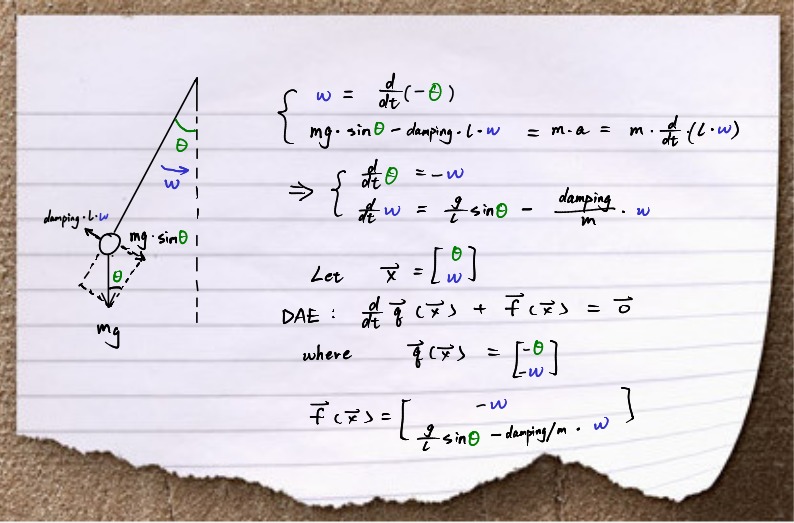 θ
w
damping·l·w
mg·sinθ
θ
mg
w = d/dt (-θ)
mg·sinθ - damping·l·w = m·a = m·d/dt·(l·w)
⇒ { d/dt θ = -w
d/dt w = g/l sinθ - damping/m · w
Let x⃗ = [θ w]
DAE : d/dt q⃗(x⃗) + f⃗(x⃗) = 0⃗
where q⃗(x⃗) = [-θ -w]
f⃗(x⃗) = [-w
g/l sinθ - damping/m · w]